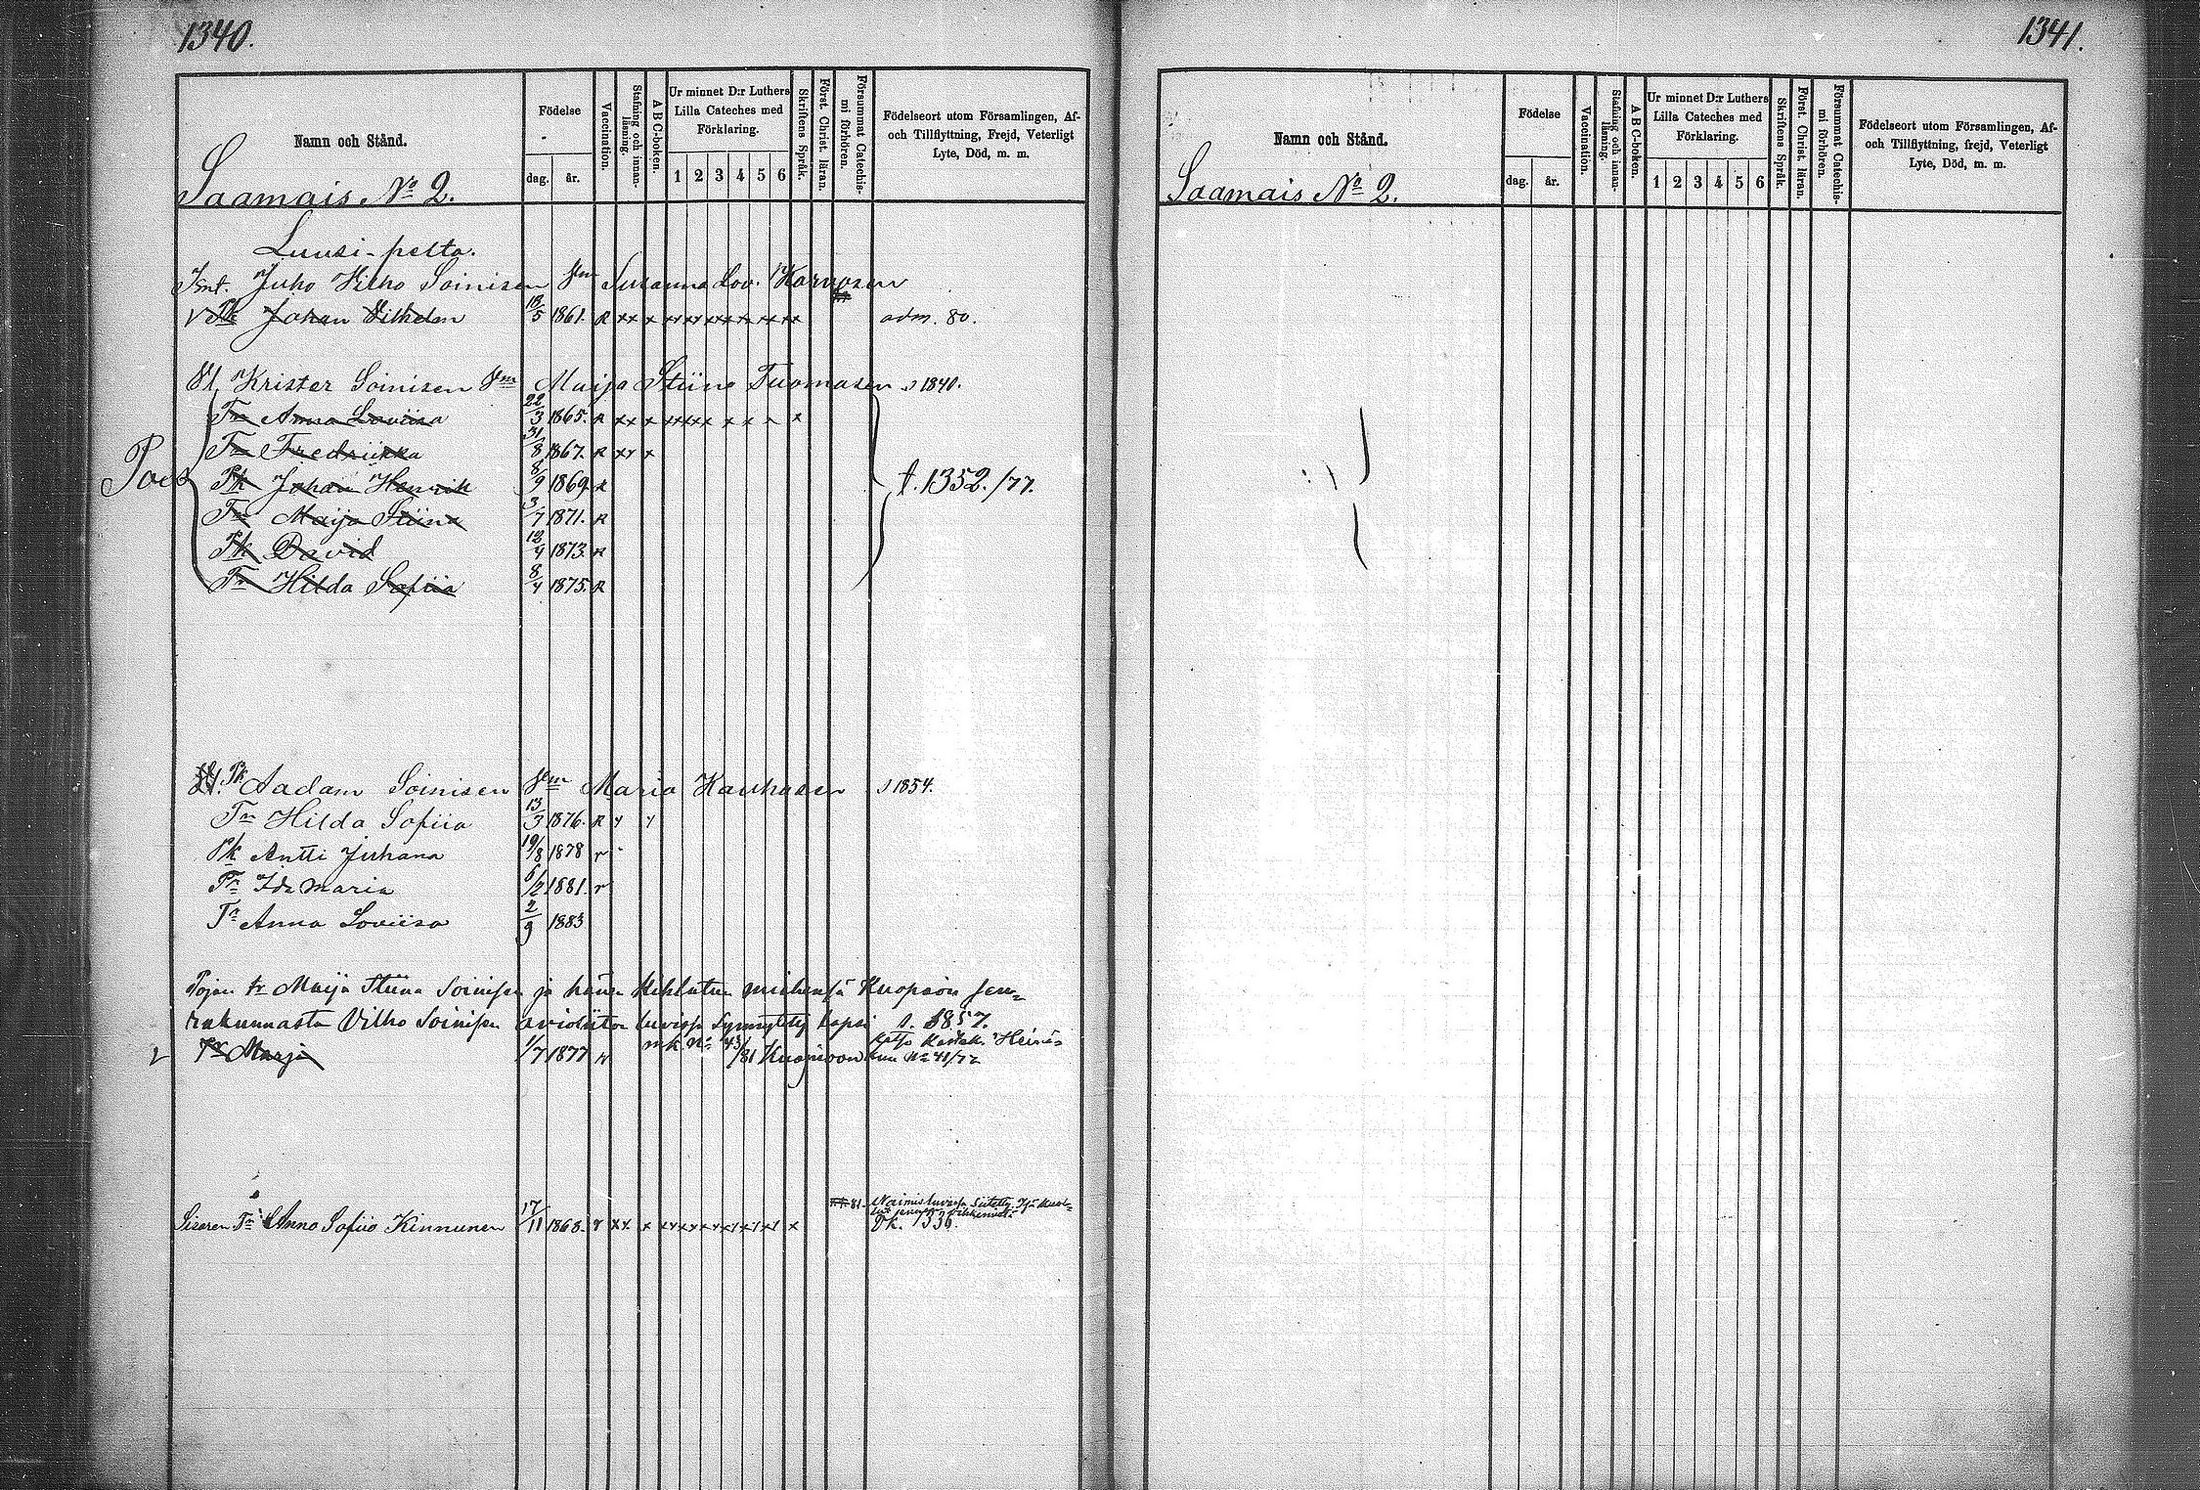 1340.
Namn och Stånd.
Födelse
dag.
år.
Vaccination.
Stafning och innan-
läsning.
ABC-boken.
Ur minnet D:r Luthers
Lilla Cateches med
Förklaring.
1 2 3 4 5 6
Skriftens Språk.
Först. Christ. läran.
Försummat Catechis-
mi förhören.
Födelseort utom Församlingen, Af-
och Tillflyttning, Frejd, Veterligt
Lyte, Död, m. m.
Saamais No 2.
Luusi-pelto.
Juho Vilho Soinisen Susanna Lov. Korhosen
Johan Vilhelm 18/5 1861. R xx x adm. 80.
Krister Soinisen Maija Stiina Tuomasen s 1840.
Tr Anna Loviisa 22/3 1865. R xx x
Tr Fredriikka 31/8 1867. R xx x
Pois
Pk Johan Henrik 8/9 1869 R t. 1352./77.
Tr Maija Stiina 3/7 1871. R
Pk David 12/4 1873. R
Tr Hilda Sofiia 8/4 1875. R
Pk Aadam Soinisen Maria Kauhasen s 1854.
Tr Hilda Sofiia 13/3 1876. R
Pk Antti Juhana 19/8 1878 r
Tr Ida Maria 6/2 1881. r
Tr Anna Loviisa 2/9 1883
Pojan tr Maija Stiina Soinisen ja hänen miehensä Kuopion seu-
rakunnasta Vilho Soinisen aviolüton lapsi s. 1857.
Tr Marja 1/7 1877 R mk No 43/81 Kuopioon No 41/72
Sisaren Tr Anna Sofiia Kinnunen 17/11 1868. r xx x
Ok. 1336.
1341.
Namn och Stånd.
Födelse
dag.
år.
Vaccination.
Stafning och innan-
läsning.
ABC-boken.
Ur minnet D:r Luthers
Lilla Cateches med
Förklaring.
1 2 3 4 5 6
Skriftens Språk.
Först. Christ. läran.
Försummat Catechis-
mi förhören.
Födelseort utom Församlingen, Af-
och Tillflyttning, frejd, Veterligt
Lyte, Död, m. m.
Saamais No 2.